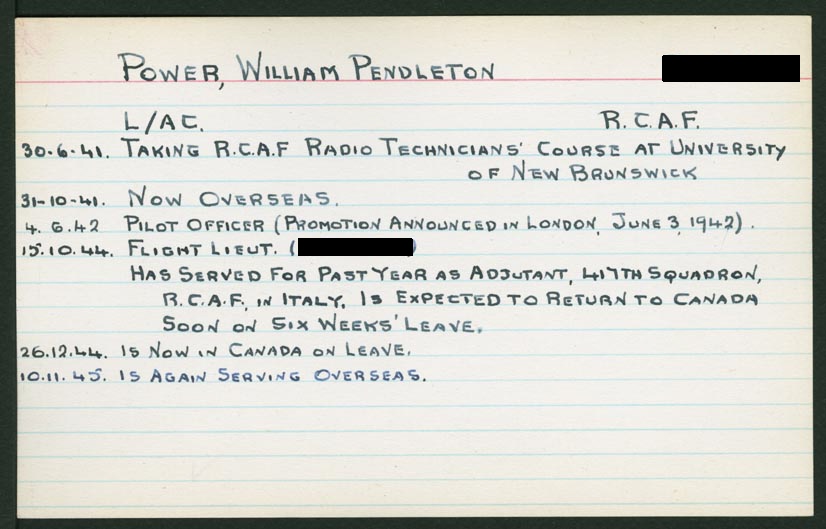 POWER, WILLIAM PENDLETON
L/AC. R.C.A.F.
30.6.41. TAKING R.C.A.F RADIO TECHNICIANS' COURSE AT UNIVERSITY
OF NEW BRUNSWICK
31-10-41. NOW OVERSEAS.
4.6.42 PILOT OFFICER (PROMOTION ANNOUNCED IN LONDON, JUNE 3, 1942).
15.10.44. FLIGHT LIEUT. ( )
HAS SERVED FOR PAST YEAR AS ADJUTANT, 417TH SQUADRON,
R.C.A.F, IN ITALY, IS EXPECTED TO RETURN TO CANADA
SOON ON SIX WEEKS' LEAVE.
26.12.44. IS NOW IN CANADA ON LEAVE.
10.11.45. IS AGAIN SERVING OVERSEAS.